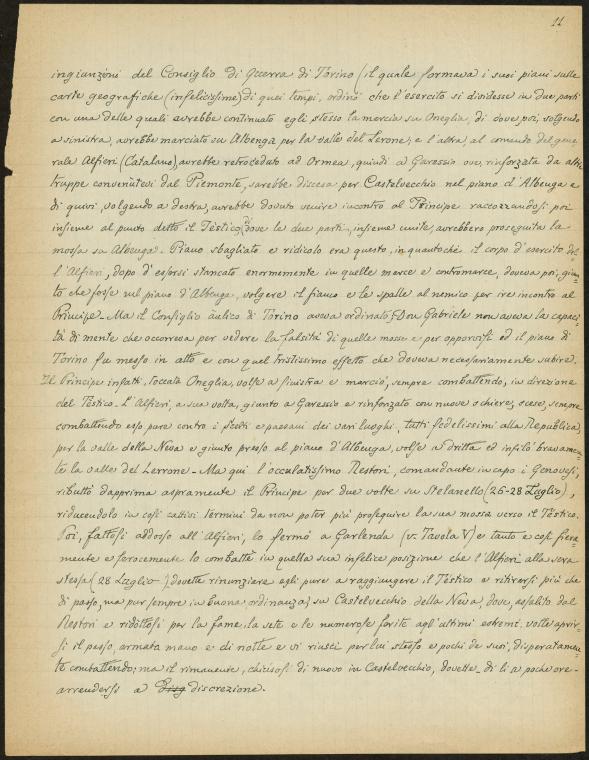 11
ingiunzioni del Consiglio di Guerra di Torino (il quale formava i suoi piani sulle
carte geografiche (infelicissime) di quei tempi, ordinò che l'esercito si dividesse in due parti
con una delle quali avrebbe continuato egli stesso la marcia su Oneglia, di dove, poi, volgendo
a sinistra, avrebbe marciato su Albenga per la valle del Lerone; e l'altra, al comando del gene
rale Alfieri (Catalano), avrebbe retroceduto ad Ormea, quindi a Garessio ove, rinforzata da altre
truppe convenutevi dal Piemonte, sarebbe discesa per Castelvecchio nel piano d'Albenga e
di quivi, volgendo a destra, avrebbe dovuto venire incontro al Principe raccozzandosi poi
insieme al punto detto il Tèstico, dove le due parti, insieme unite, avrebbero proseguita la
mossa su Albenga. - Piano sbagliato e ridicolo era questo, in quantochè il corpo d'esercito del=
l'Alfieri, dopo d'essersi stancato enormemente in quelle marce e contromarce, doveva poi, giun=
to che fosse sul piano d'Albenga, volgere il fianco e le spalle al nemico per ire incontro al
Principe. - Ma il Consiglio àulico di Torino aveva ordinato; Don Gabriele non aveva la capaci=
tà di mente che occorreva per vedere la falsità di quelle mosse e per opporvisi ed il piano di
Torino fu messo in atto e con quel tristissimo effetto che doveva necessariamente subire.
Il Principe infatti, toccata Oneglia, volse a sinistra e marciò, sempre combattendo, in direzione
del Tèstico. L'Alfieri, a sua volta, giunto a Garessio e rinforzato con nuove schiere, scese, sempre
combattendo esso pure contro i scelti e paesani dei vari luoghi, tutti fedelissimi alla Repubblica,
per la valle della Neva e giunto presso al piano d'Albenga, volse a dritta ed infilò bravamen=
te la valle del Lerrone. - Ma qui l'occulatissimo Restori, comandante in capo i Genovesi,
ributtò dapprima aspramente il Principe per due volte su Stelanello (26-28 Luglio),
riducendolo in così cattivi termini da non poter più proseguire la sua mossa verso il Tèstico.
Poi, fattosi addosso all'Alfieri, lo fermò a Garlenda (v. Tavola V) e tanto e così fiera=
mente e ferocemente lo combattè in quella sua infelice posizione che l'Alfieri alla sera
stessa (28 Luglio -) dovette rinunziare egli pure a raggiungere il Tèstico e ritirarsi più che
di passo, ma pur sempre in buona ordinanza, su Castelvecchio della Neva, dove, assalito dal
Restori e ridottosi per la fame, la sete e le numerose ferite agl'ultimi estremi, volle aprir=
si il passo, armata mano e di notte e vi riuscì per lui stesso e pochi de' suoi, disperatamen=
te combattendo; ma il rimanente, chiusosi di nuovo in Castelvecchio, dovette di lì a poche ore
arrendersi a discrezione.